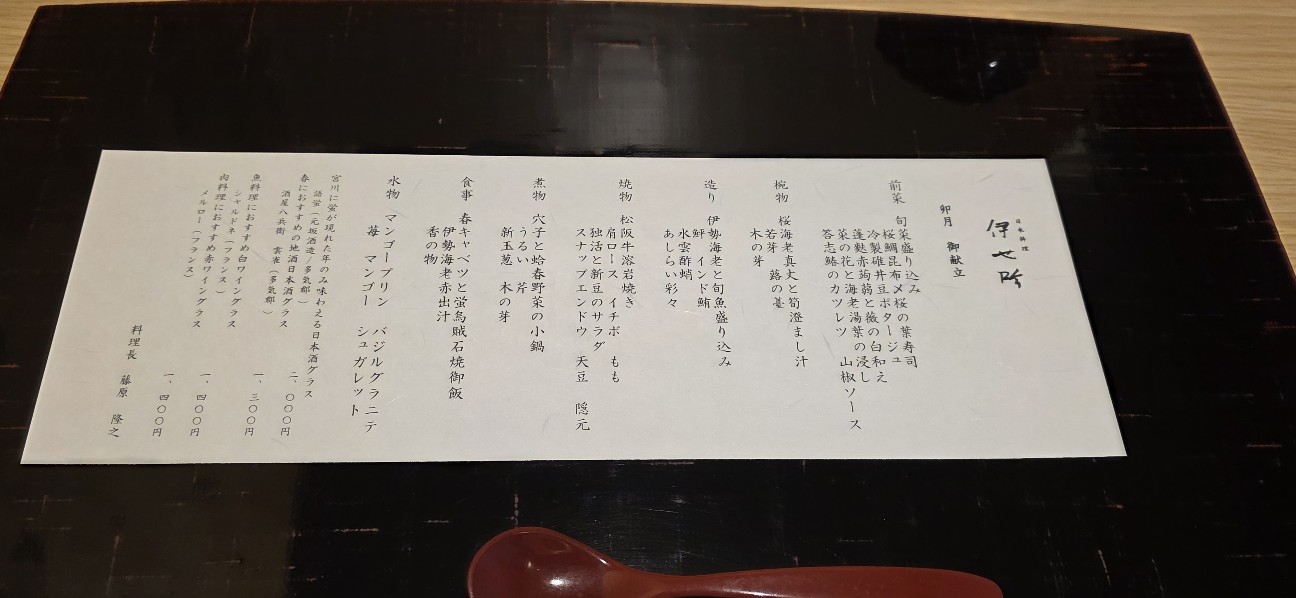 日本料理
伊せ吟
卯月　御献立
前菜　旬菜盛り込み
桜鯛昆布〆桜の葉寿司
冷製碓井豆ポタージュ
蓬麩赤蒟蒻と薇の白和え
菜の花と海老湯葉の浸し
答志鰆のカツレツ　山椒ソース
椀物　桜海老真丈と筍澄まし汁
若芽　蕗の薹
木の芽
造り　伊勢海老と旬魚盛り込み
鮃　インド鮪
水雲酢蛸
あしらい彩々
焼物　松阪牛溶岩焼き
肩ロース　イチボ　もも
独活と新豆のサラダ
スナップエンドウ　天豆　隠元
煮物　穴子と蛤春野菜の小鍋
うるい　芹
新玉葱　木の芽
食事　春キャベツと蛍烏賊石焼御飯
伊勢海老赤出汁
香の物
水物　マンゴープリン　バジルグラニテ
苺　マンゴー　シュガレット
宮川に蛍が現れた年のみ味わえる日本酒グラス
語蛍（元坂酒造/多気郡）　二、〇〇〇円
春におすすめの地酒日本酒グラス
酒屋八兵衛　雲雀（多気郡）　一、三〇〇円
魚料理におすすめ白ワイングラス
シャルドネ（フランス）　一、四〇〇円
肉料理におすすめ赤ワイングラス
メルロー（フランス）　一、四〇〇円
料理長　藤原　隆之